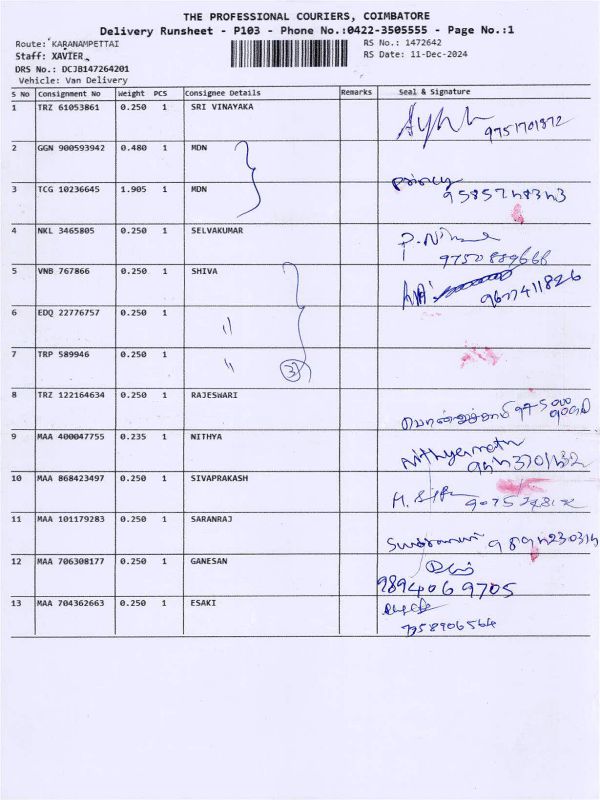 THE PROFESSIONAL COURIERS, COIMBATORE
Delivery Runsheet - P103 - Phone No.:0422-3505555 - Page No.:1
Route: KARANAMPETTAI
RS No.: 1472642
Staff: XAVIER
RS Date: 11-Dec-2024
DRS No.: DCJB147264201
Vehicle: Van Delivery
S No Consignment No Weight PCS Consignee Details Remarks Seal & Signature
1 TRZ 61053861 0.250 1 SRI VINAYAKA 9751701872
2 GGN 900593942 0.480 1 MDN
3 TCG 10236645 1.905 1 MDN
4 NKL 3465805 0.250 1 SELVAKUMAR
5 VNB 767866 0.250 1 SHIVA 9677411826
6 EDQ 22776757 0.250 1 "
7 TRP 589946 0.250 1 " 3
8 TRZ 122164634 0.250 1 RAJESWARI
9 MAA 400047755 0.235 1 NITHYA
10 MAA 868423497 0.250 1 SIVAPRAKASH
11 MAA 101179283 0.250 1 SARANRAJ
12 MAA 706308177 0.250 1 GANESAN 9894069705
13 MAA 704362663 0.250 1 ESAKI